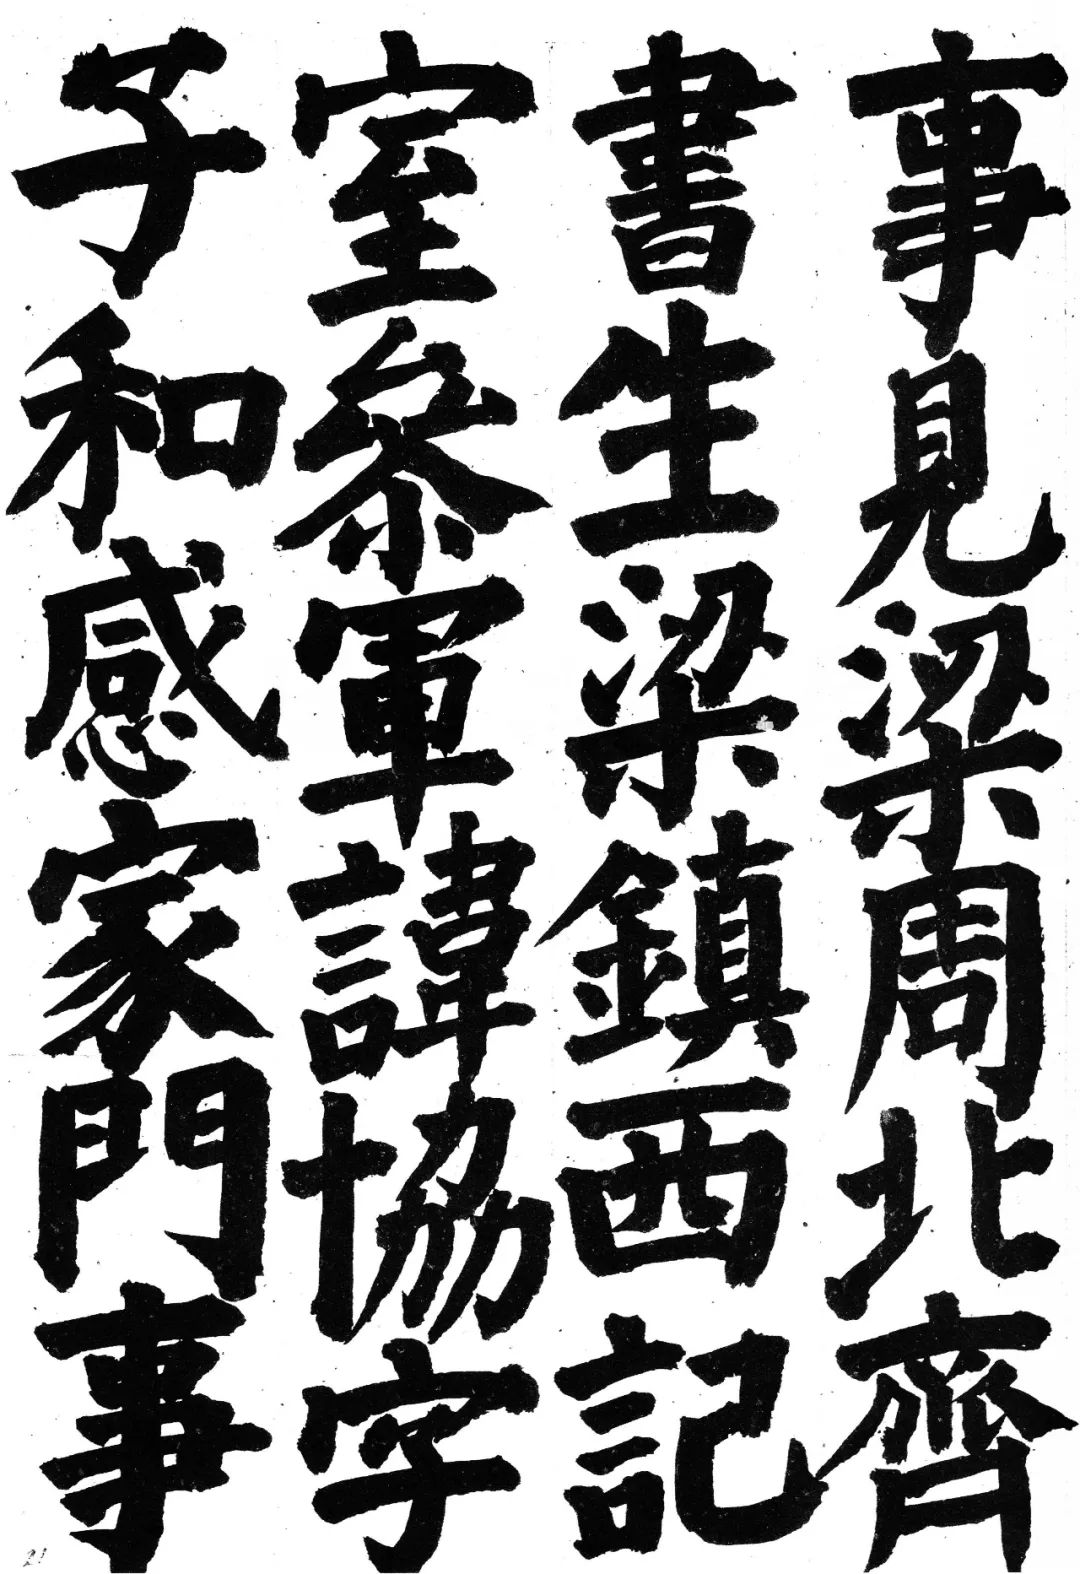 事見梁周北齊
書生梁鎮西記
室參軍諱協字
子和感家門事
21